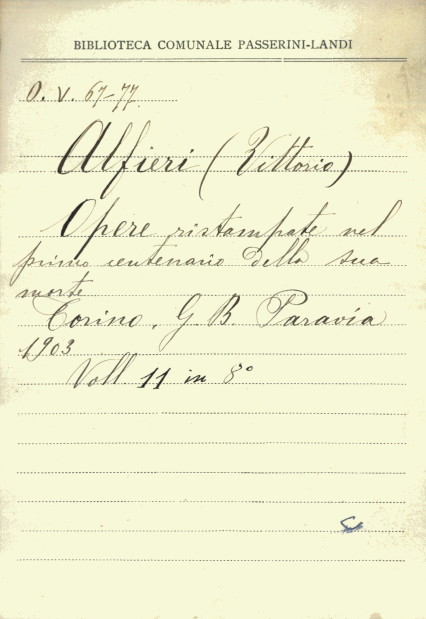 BIBLIOTECA COMUNALE PASSERINI-LANDI
O. V. 67-77
Alfieri (Vittorio)
Opere ristampate nel
primo centenario della sua
morte
Torino, G. B. Paravia
1903
Voll 11 in 8°